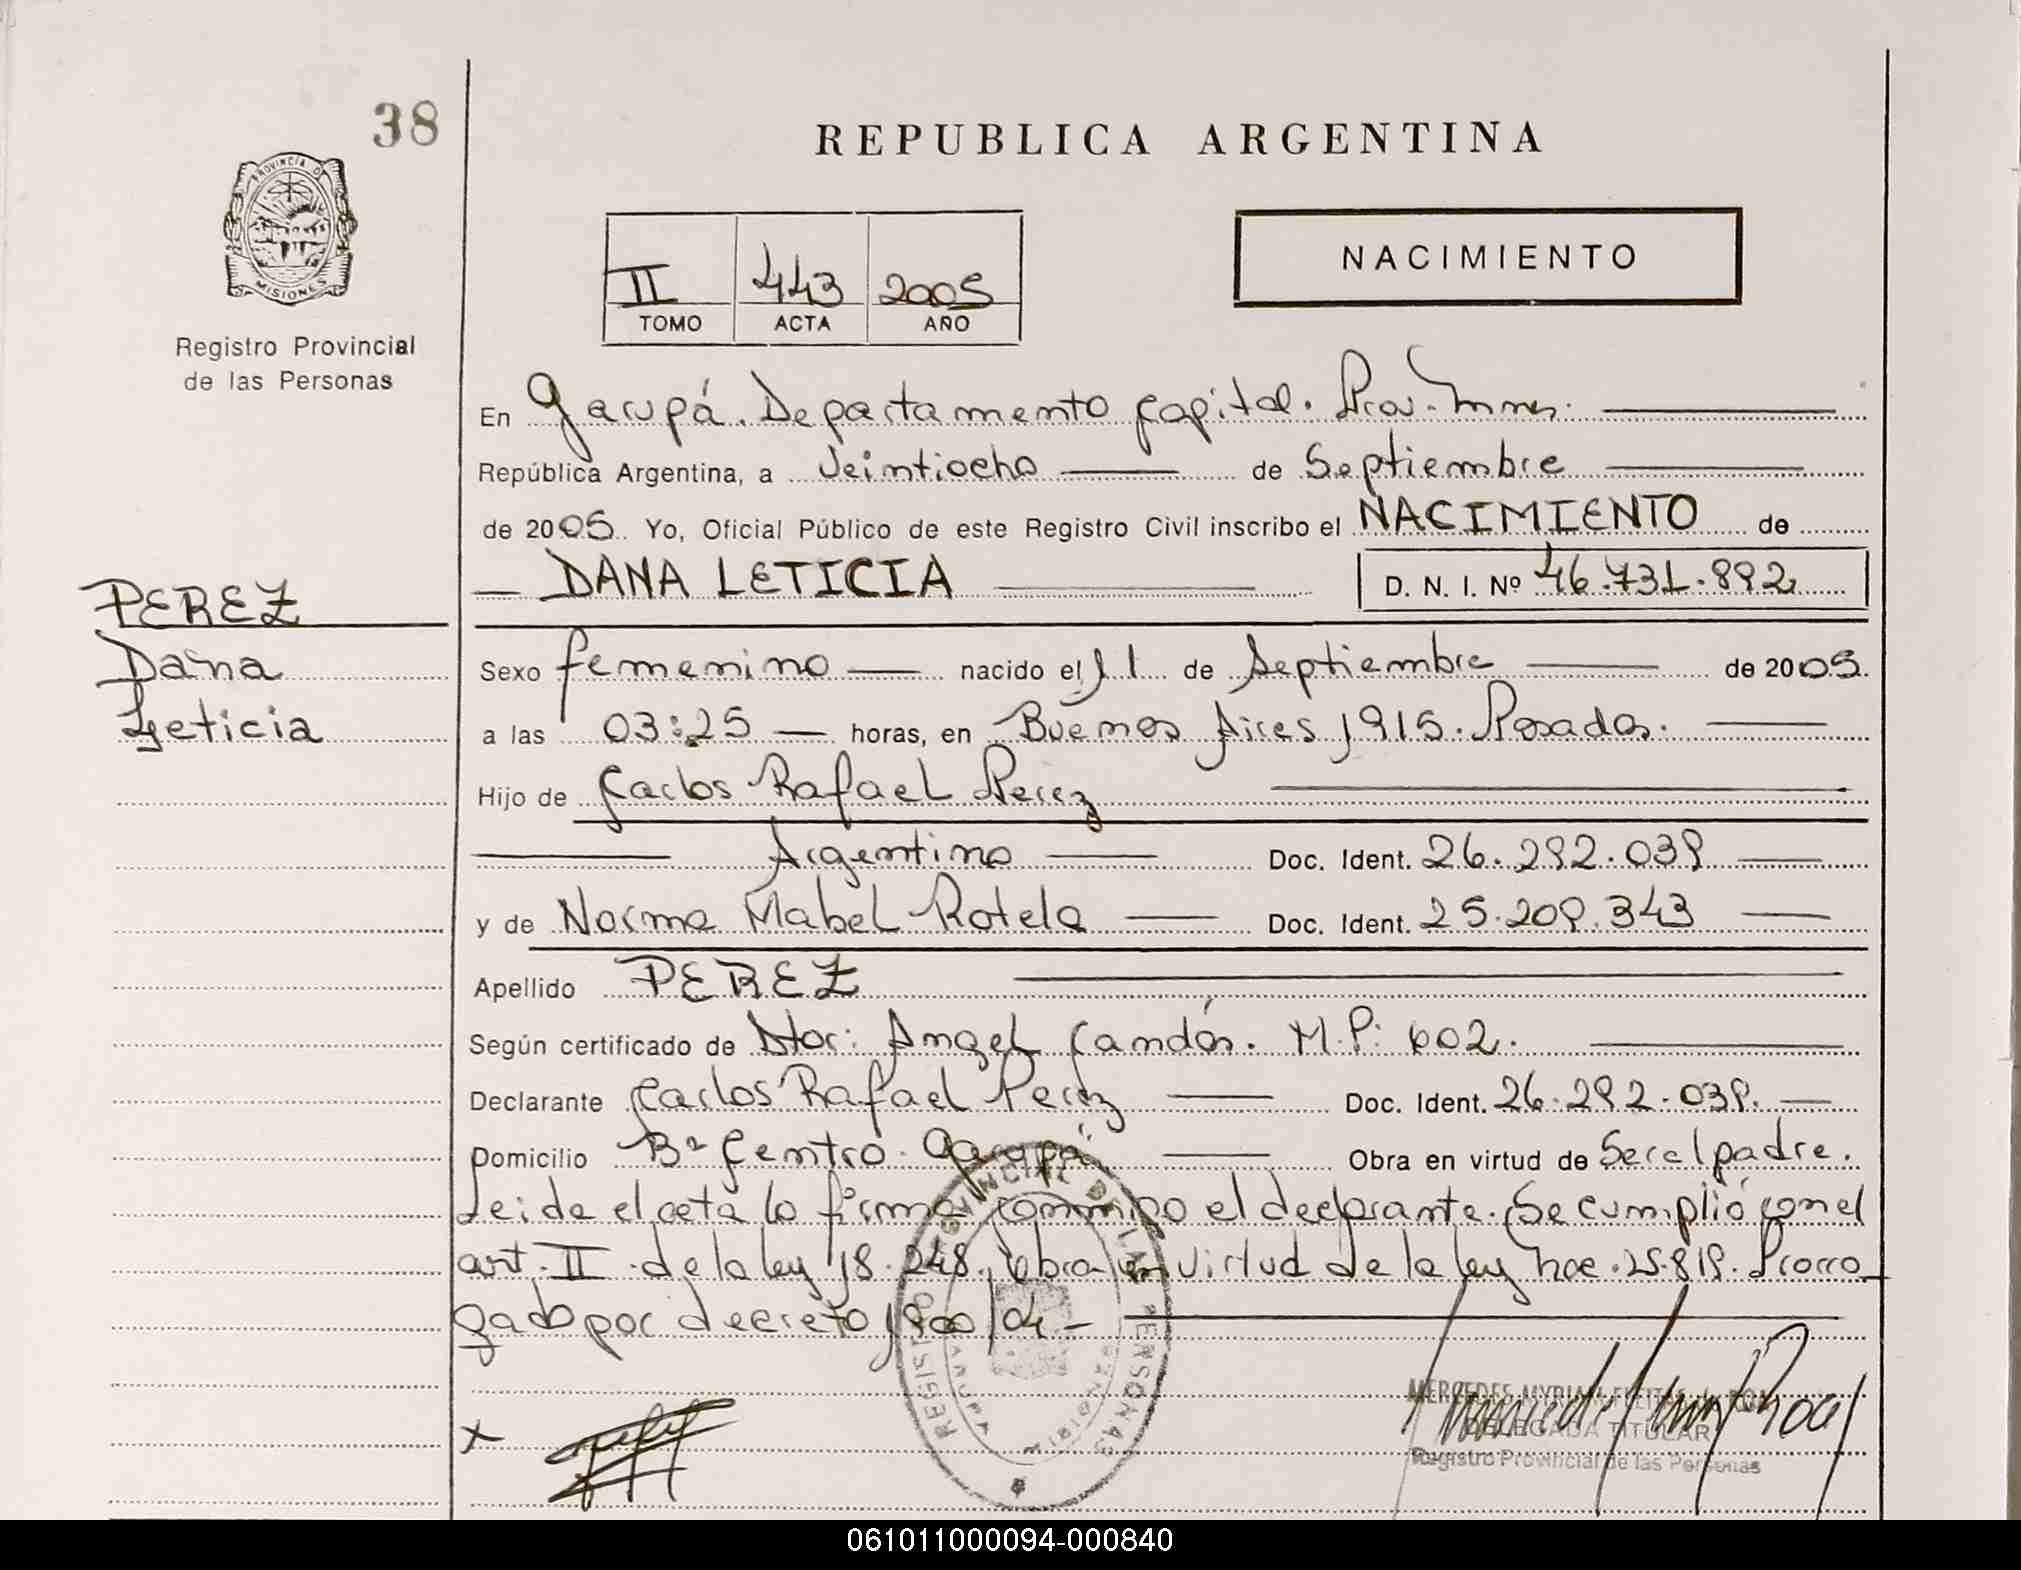 38
PROVINCIA DE
MISIONES
Registro Provincial
de las Personas
REPUBLICA ARGENTINA
II 443 2005
TOMO ACTA AÑO
NACIMIENTO
En Garupá. Departamento Capital. Prov. Mnes.
República Argentina, a Veintiocho de Septiembre
de 2005. Yo, Oficial Público de este Registro Civil inscribo el NACIMIENTO de
DANA LETICIA D. N. I. Nº 46.731.892
PEREZ
Dana
Leticia
Sexo femenino nacido el 11 de Septiembre de 2005.
a las 03:25 horas, en Buenos Aires 1915. Posadas.
Hijo de Carlos Rafael Perez
Argentino Doc. Ident. 26.292.039
y de Norma Mabel Rotela Doc. Ident. 25.209.343
Apellido PEREZ
Según certificado de Dtor: Angel Candás. M.P: 602.
Declarante Carlos Rafael Perez Doc. Ident. 26.292.039.
Domicilio Bº Centro. Garupá Obra en virtud de Ser el padre.
Leida el acta la firma conmigo el declarante. Se cumplió con el
art. II de la ley 18.248. Obra en virtud de la ley nac. 25.819. Prorro
gado por decreto 1900/04-
REGISTRO PROVINCIAL DE LAS PERSONAS
x
MERCEDES MYRIAM FLEITAS de ROA
DELEGADA TITULAR
Registro Provincial de las Personas
061011000094-000840